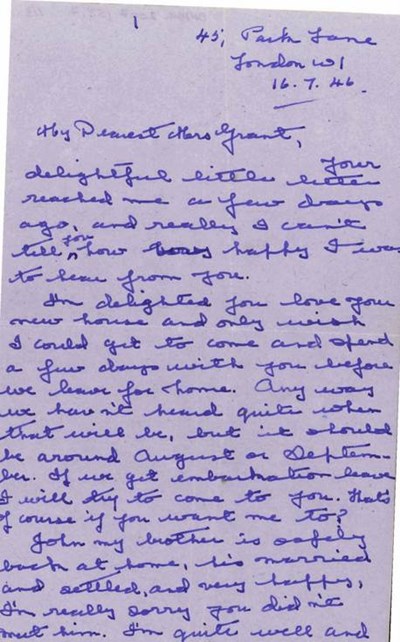 1
45, Park Lane
London W1
16. 7. 46.
My Dearest Mrs Grant,
Your
delightful little letter
reached me a few days
ago, and really I can't
tell you how happy I was
to hear from you.
I'm delighted you love your
new house and only wish
I could get to come and spend
a few days with you before
we leave for home. Any way
we hav'nt heard quite when
that will be, but it should
be around August or Septem-
ber. If we get embarkation leave
I will try to come to you. That's
of course if you want me to?
John my brother is safely
back at home, his married
and settled, and very happy,
I'm really sorry you did n't
meet him. I'm quite well and